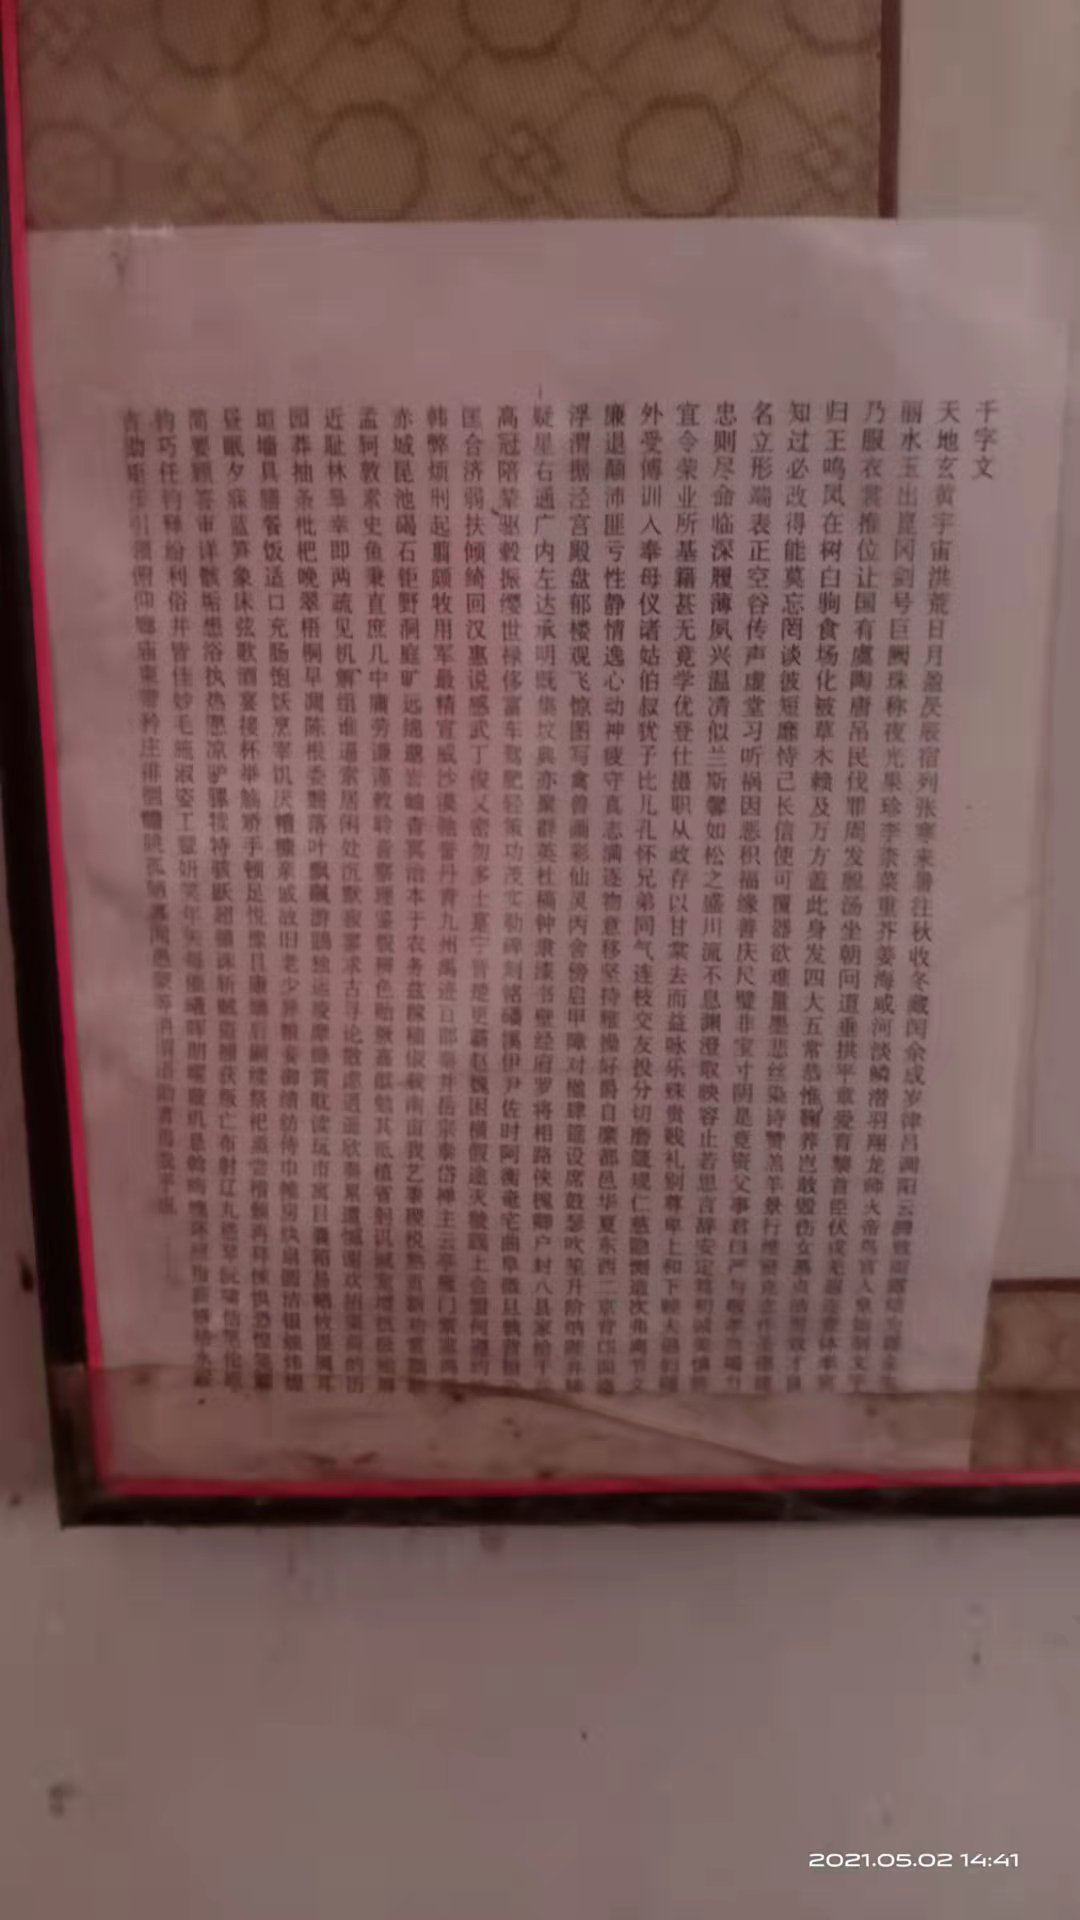 千字文
天地玄黄宇宙洪荒日月盈昃辰宿列张寒来暑往秋收冬藏闰余成岁律吕调阳云腾致雨露结为霜金生
丽水玉出崑冈剑号巨阙珠称夜光果珍李柰菜重芥姜海咸河淡鳞潜羽翔龙师火帝鸟官人皇始制文字
乃服衣裳推位让国有虞陶唐吊民伐罪周发殷汤坐朝问道垂拱平章爱育黎首臣伏戎羌遐迩壹体率宾
归王鸣凤在树白驹食场化被草木赖及万方盖此身发四大五常恭惟鞠养岂敢毁伤女慕贞洁男效才良
知过必改得能莫忘罔谈彼短靡恃己长信使可覆器欲难量墨悲丝染诗赞羔羊景行维贤克念作圣德建
名立形端表正空谷传声虚堂习听祸因恶积福缘善庆尺璧非宝寸阴是竞资父事君曰严与敬孝当竭力
忠则尽命临深履薄夙兴温清似兰斯馨如松之盛川流不息渊澄取映容止若思言辞安定笃初诚美慎终
宜令荣业所基籍甚无竟学优登仕摄职从政存以甘棠去而益咏乐殊贵贱礼别尊卑上和下睦夫唱妇随
外受傅训入奉母仪诸姑伯叔犹子比儿孔怀兄弟同气连枝交友投分切磨箴规仁慈隐恻造次弗离节义
廉退颠沛匪亏性静情逸心动神疲守真志满逐物意移坚持雅操好爵自縻都邑华夏东西二京背邙面洛
浮渭据泾宫殿盘郁楼观飞惊图写禽兽画彩仙灵丙舍傍启甲障对楹肆筵设席鼓瑟吹笙升阶纳陛弁转
疑星右通广内左达承明既集坟典亦聚群英杜稿钟隶漆书壁经府罗将相路侠槐卿户封八县家给千
高冠陪辇驱毂振缨世禄侈富车驾肥轻策功茂实勒碑刻铭磻溪伊尹佐时阿衡奄宅曲阜微旦孰营桓
匡合济弱扶倾绮回汉惠说感武丁俊乂密勿多士寔宁晋楚更霸赵魏困横假途灭虢践土会盟何遵约
韩弊烦刑起翦颇牧用军最精宣威沙漠驰誉丹青九州禹迹百郡秦并岳宗泰岱禅主云亭雁门紫塞鸡
赤城昆池碣石钜野洞庭旷远绵邈岩岫杳冥治本于农务兹稼穑俶载南亩我艺黍稷税熟贡新劝赏黜
孟轲敦素史鱼秉直庶几中庸劳谦谨敕聆音察理鉴貌辨色贻厥嘉猷勉其祗植省躬讥诫宠增抗极殆辱
近耻林皋幸即两疏见机解组谁逼索居闲处沉默寂寥求古寻论散虑逍遥欣奏累遣戚谢欢招渠荷的历
园莽抽条枇杷晚翠梧桐早凋陈根委翳落叶飘飖游鹍独运凌摩绛霄耽读玩市寓目囊箱易輶攸畏属耳
垣墙具膳餐饭适口充肠饱饫烹宰饥厌糟糠亲戚故旧老少异粮妾御绩纺侍巾帷房纨扇圆洁银烛炜煌
昼眠夕寐蓝笋象床弦歌酒宴接杯举觞矫手顿足悦豫且康嫡后嗣续祭祀烝尝稽颡再拜悚惧恐惶笺牒
简要顾答审详骸垢想浴执热愿凉驴骡犊特骇跃超骧诛斩贼盗捕获叛亡布射辽丸嵇琴阮啸恬笔伦纸
钧巧任钓释纷利俗并皆佳妙毛施淑姿工颦妍笑年矢每催曦晖朗曜璇玑悬斡晦魄环照指薪修祜永绥
吉劭矩步引领俯仰廊庙束带矜庄徘徊瞻眺孤陋寡闻愚蒙等诮谓语助者焉哉乎也
2021.05.02 14:41